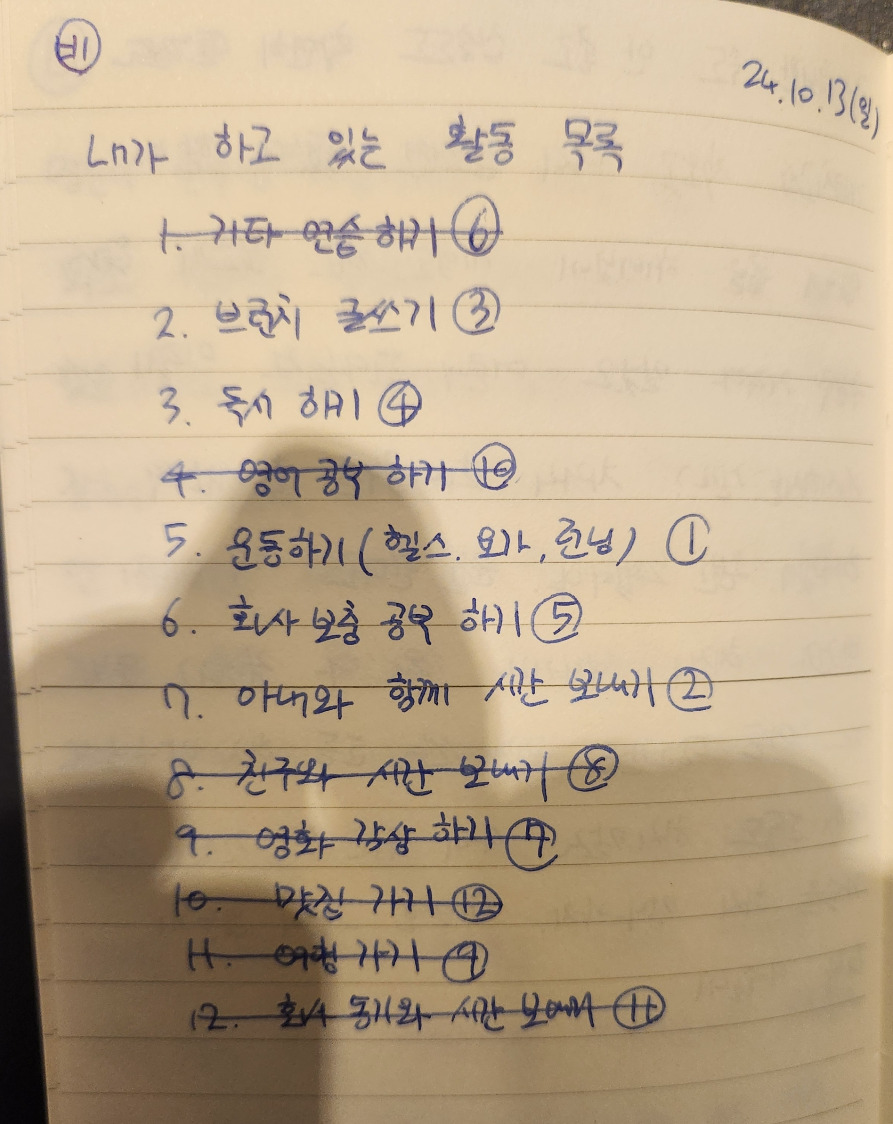 비
24.10.13(일)
내가 하고 있는 활동 목록
1. 기타 연습 하기 ⑥
2. 브런치 글쓰기 ③
3. 독서 하기 ④
4. 영어 공부 하기 ⑩
5. 운동하기(헬스. 요가, 런닝) ①
6. 회사 보충 공부 하기 ⑤
7. 아내와 함께 시간 보내기 ②
8. 친구와 시간 보내기 ⑧
9. 영화 감상 하기 ⑦
10. 맛집 가기 ⑫
11. 여행 가기 ⑨
12. 회사 동기와 시간 보내기 ⑪